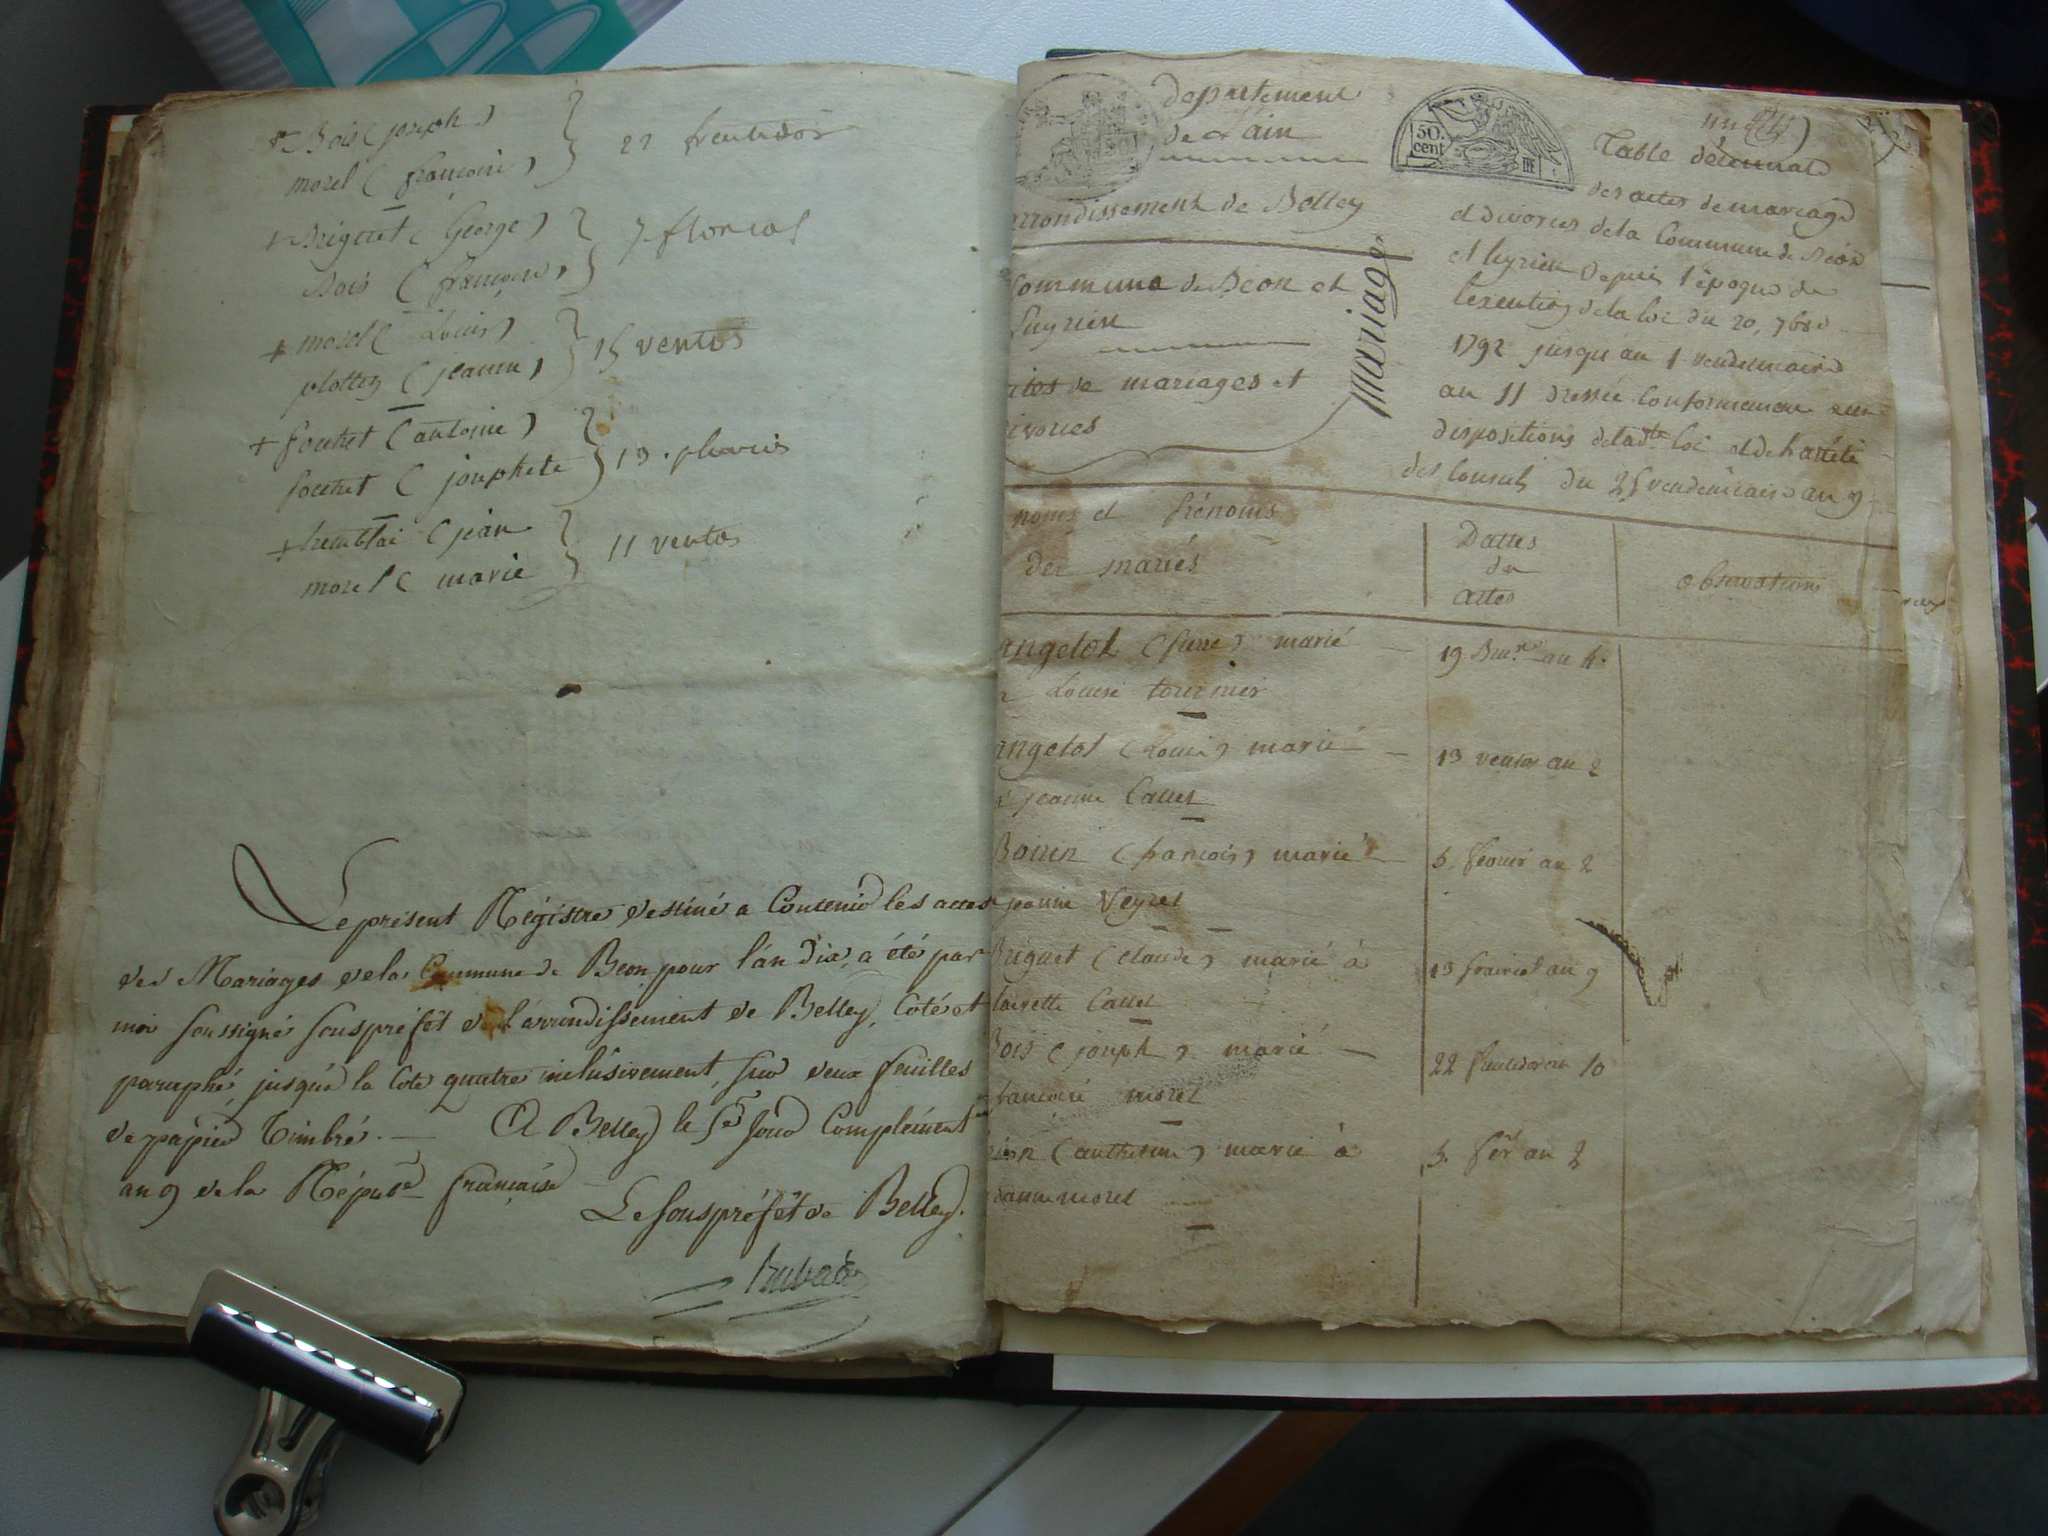 Bois (joseph)
morel (françoise) } 22 fructidor
Briguet (George)
Bois (françoise) } 7 floreal
morel (Louis)
plottey (jeanne) } 15 ventos
foutret (antoine)
foutret (josephete } 19
(jean
morel (marie } 11 ventos
Le présent Régistre destiné a Contenir les actes
des Mariages de la Commune de Beon pour l'an dix, a été par
moi soussigné souspréfêt de l'arrondissement de Belley, Coté et
paraphé, jusqu'à la Cote quatre inclusivement, sur deux feuilles
de papier Timbré. — A Belley le 5e Jour Complément
an 9 de la Répub. française
Le souspréfêt de Belley.
departement
de l'ain
arrondissement de Belley
Commune de Beon et
Luyrieu
actes de mariages et
divorces
mariage
50.
cent
RF
Table décennale
des actes de mariage
et divorces de la Commune de Béon
et luyrieu depuis l'époque de
l'execution de la loi du 20, 7bre
1792 jusqu au 1 vendemiaire
an 11 dressée conformément aux
dispositions de ladte loi et de l'arrêté
des Consuls du 25 vendémiaire an 9
noms et Prénoms
des mariés
Dattes
des
actes
observations
angelot marié — 19 an 4.
a Louise tournier
angelot (Louis) marié — 13 ventos an 2
a jeanne Callet
Bouin (francois) marié — 5. fevrier an 2
jeanne Veyret
Briguet (claude) marié à 13 prairial an 9
Callet
Bois (joseph) marié — 22 fructidor an 10
francoise morel
marié à 5. fevr an 2
jeanne morel